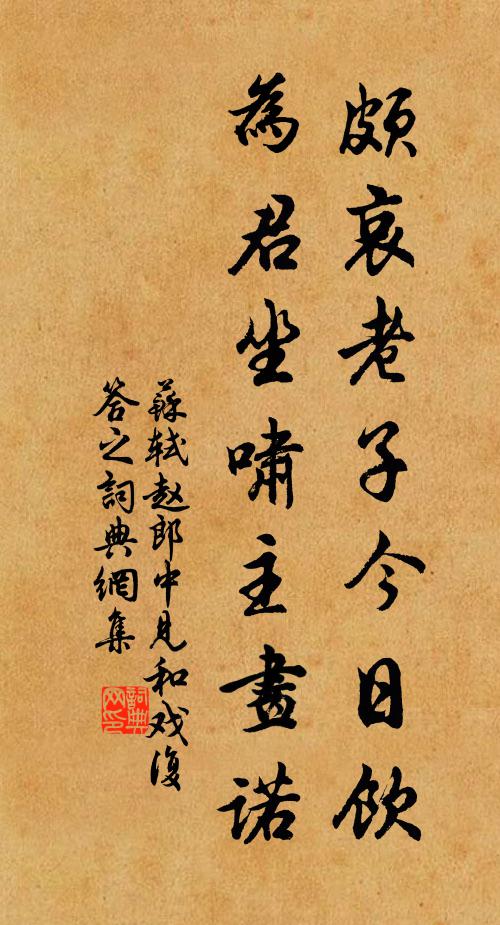 頗哀老子今日飲
為君坐嘯主畫諾
蘇軾赵郎中見和戏復
答之詞典網集
詞典
网印